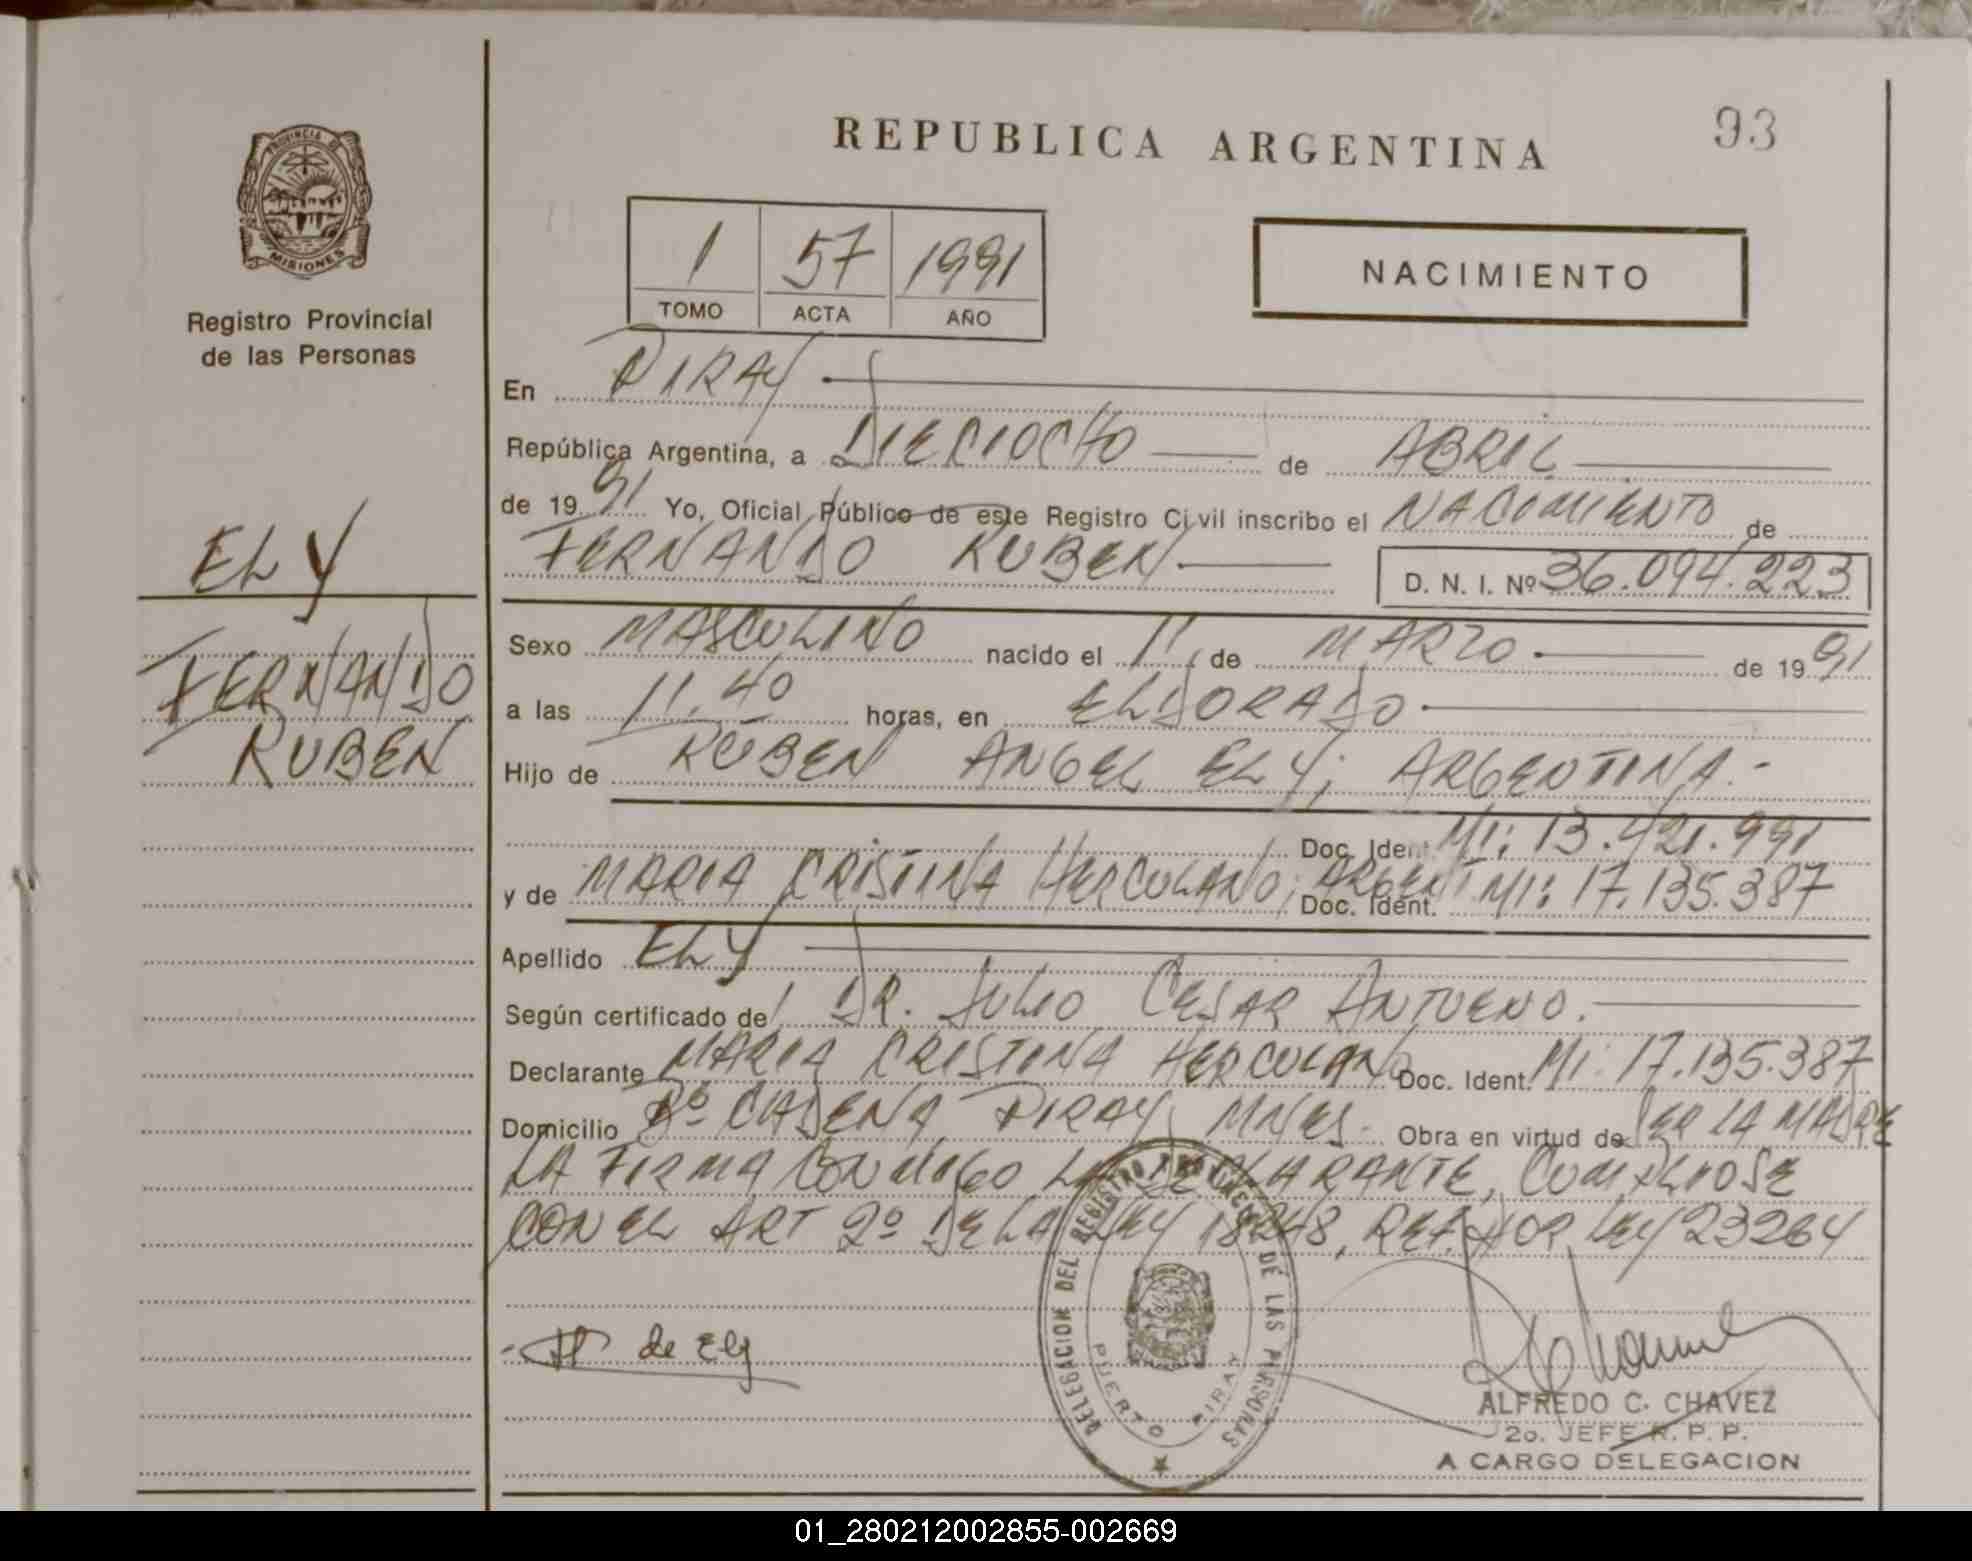 REPUBLICA ARGENTINA
93
PROVINCIA DE
MISIONES
Registro Provincial
de las Personas
1 57 1991
TOMO ACTA AÑO
NACIMIENTO
En PIRAY
República Argentina, a DIECIOCHO de ABRIL
de 1991 Yo, Oficial Público de este Registro Civil inscribo el NACIMIENTO de
FERNANDO RUBEN D. N. I. Nº 36.094.223
ELY
FERNANDO
RUBEN
Sexo MASCULINO nacido el 11 de MARZO de 1991
a las 11.40 horas, en ELDORADO
Hijo de RUBEN ANGEL ELY; ARGENTINA.-
Doc. Ident. MI: 13.421.991
y de MARIA CRISTINA HERCULANO; ARGENT Doc. Ident. MI: 17.135.387
Apellido ELY
Según certificado de DR. JULIO CESAR ANTUENO.
Declarante MARIA CRISTINA HERCULANO Doc. Ident. MI: 17.135.387
Domicilio Bº CADENA PIRAY, MNES. Obra en virtud de SER LA MADRE
LA FIRMA CONMIGO LA DECLARANTE, CUMPLIOSE
CON EL ART 2º DE LA LEY 18248, REF. POR LEY 23264
de Ely
DELEGACION DEL REGISTRO PROVINCIAL DE LAS PERSONAS
PUERTO PIRAY
ALFREDO C. CHAVEZ
2o. JEFE R. P. P.
A CARGO DELEGACION
01_280212002855-002669